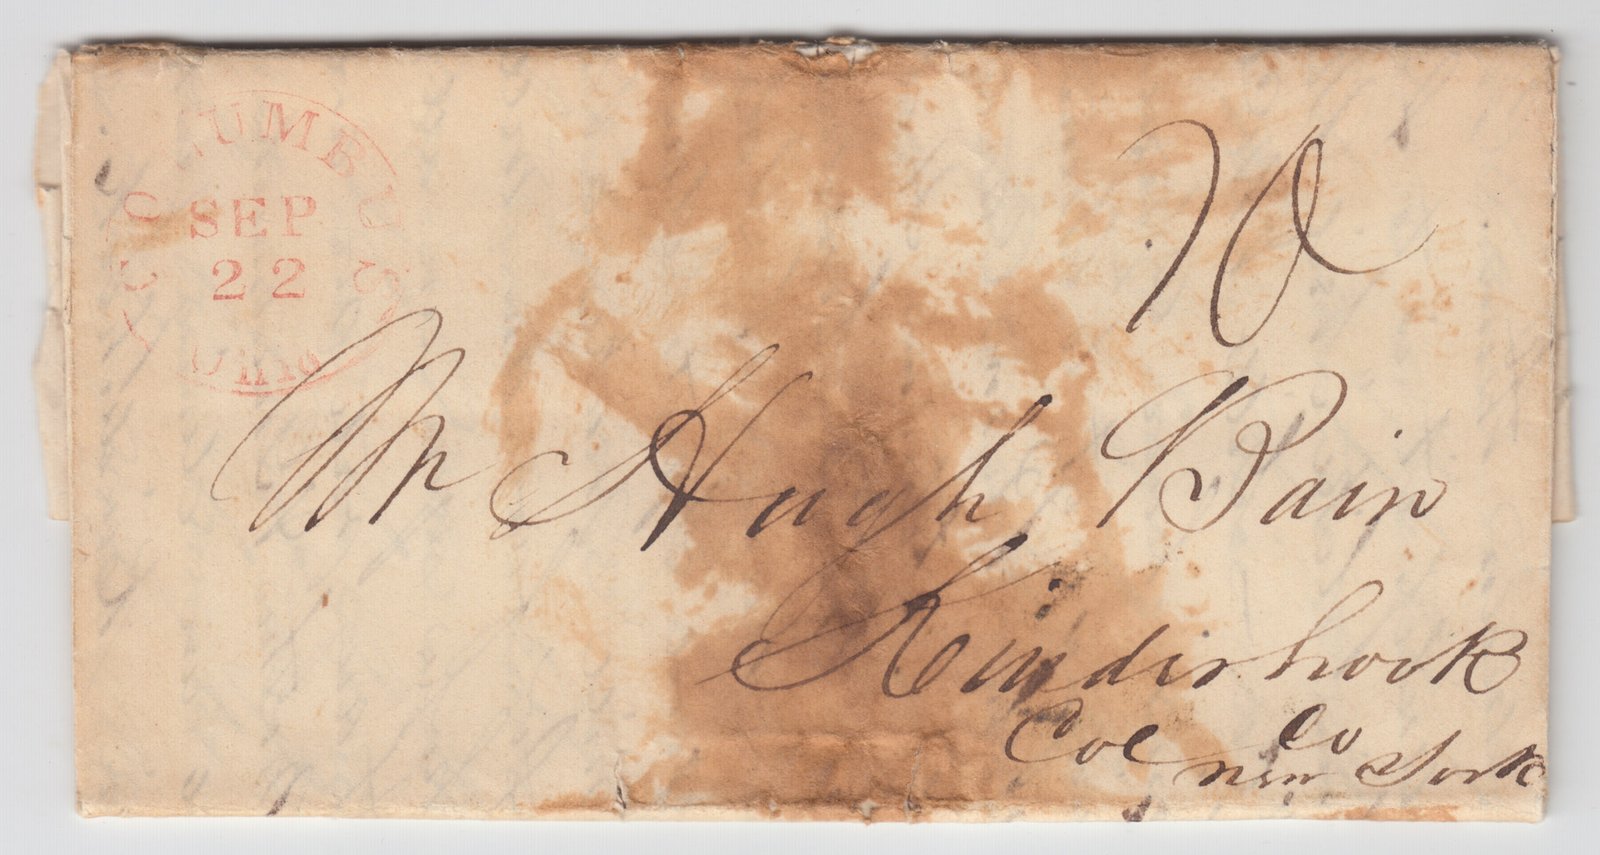 COLUMBUS
SEP
22
Ohio
10
Mr Hugh Bain
Kinderhook
Col Co
New York